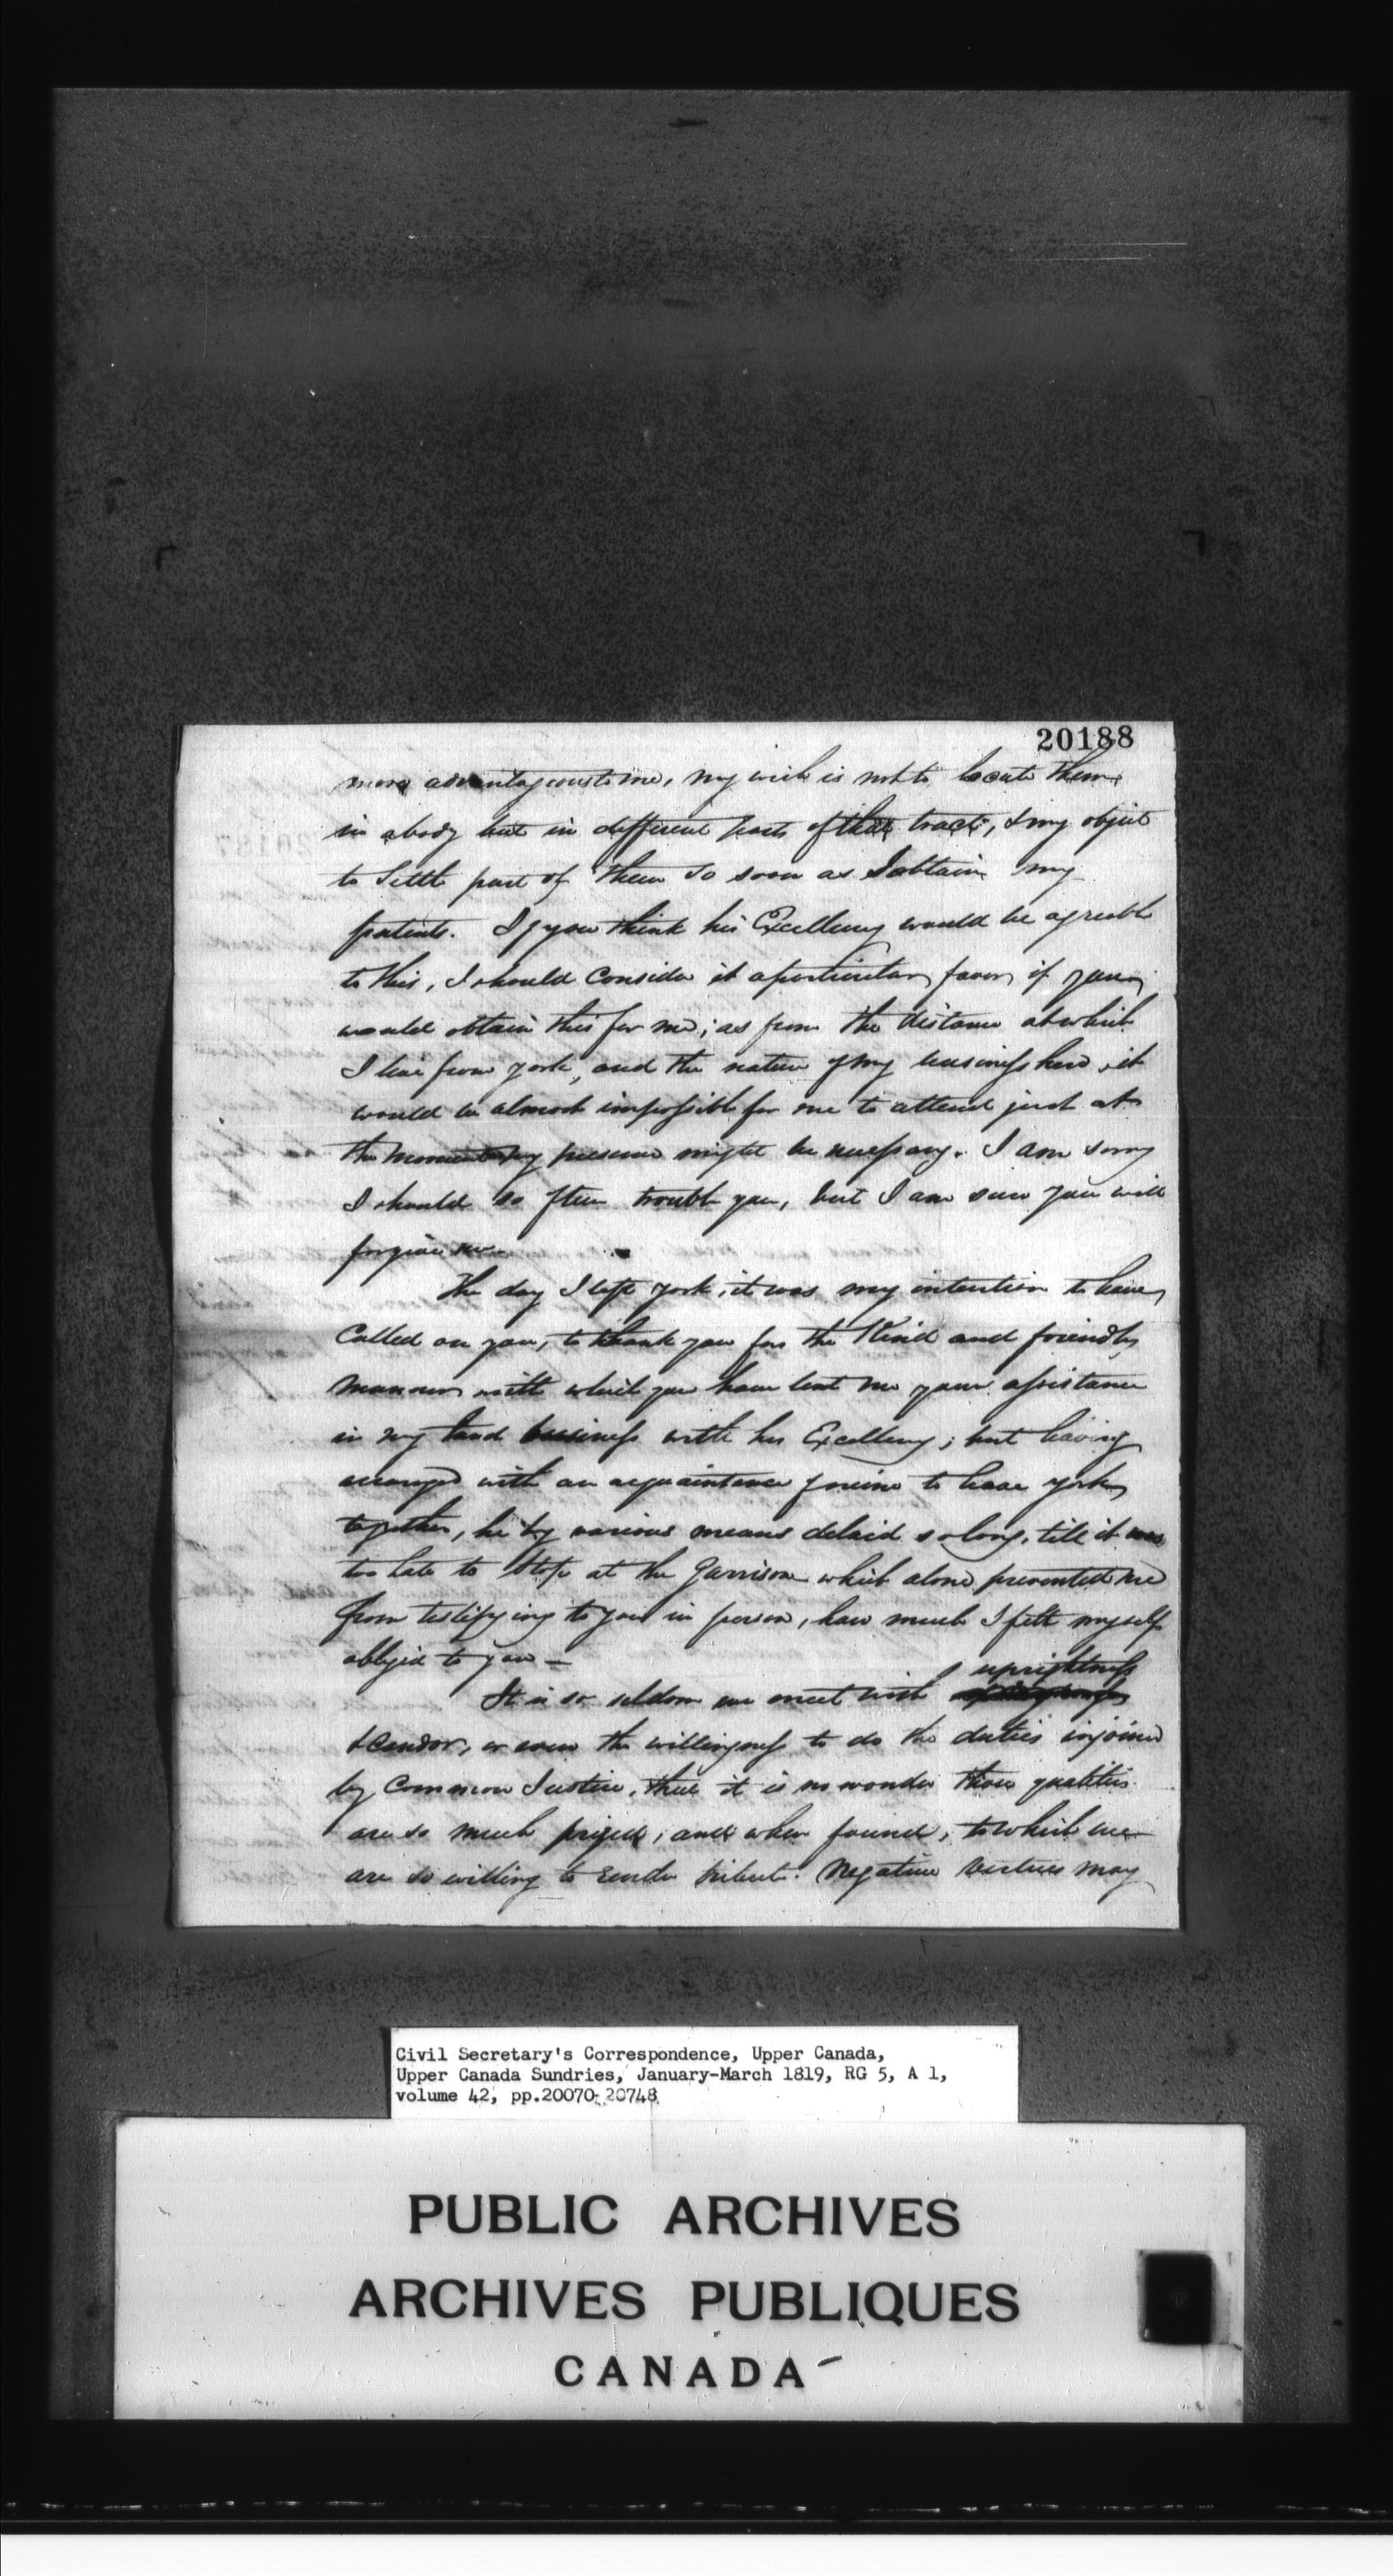 20188
more advantageous to me, my wish is not to locate them
in a body but in different parts of that tract, & my object
to Settle part of them so soon as I obtain my
patents. If you think his Excellency would be agreeable
to this, I should consider it a particular favor, if you
would obtain this for me; as from the distance at which
I live from York, and the nature of my business here, it
would be almost impossible for me to attend just at
the moment my presence might be necessary. I am sorry
I should so often trouble you, but I am sure you will
forgive me.
The day I left York, it was my intention to have
Called on you, to thank you for the Kind and friendly
manner with which you have lent me your assistance
in my land business with his Excellency; but having
arranged with an acquaintance of mine to leave York
together, he by various means delaid so long, till it was
too late to Stop at the Garrison which alone prevented me
from testifying to you in person, how much I felt myself
obliged to you —
uprightness
It is so seldom we meet with
& candor, or even the willingness to do the duties injoined
by Common Justice, that it is no wonder those qualities
are so much prized, and when found, to which we
are so willing to render tribute. Negative virtues may
Civil Secretary's Correspondence, Upper Canada,
Upper Canada Sundries, January-March 1819, RG 5, A 1,
volume 42, pp.20070-20748
PUBLIC ARCHIVES
ARCHIVES PUBLIQUES
CANADA